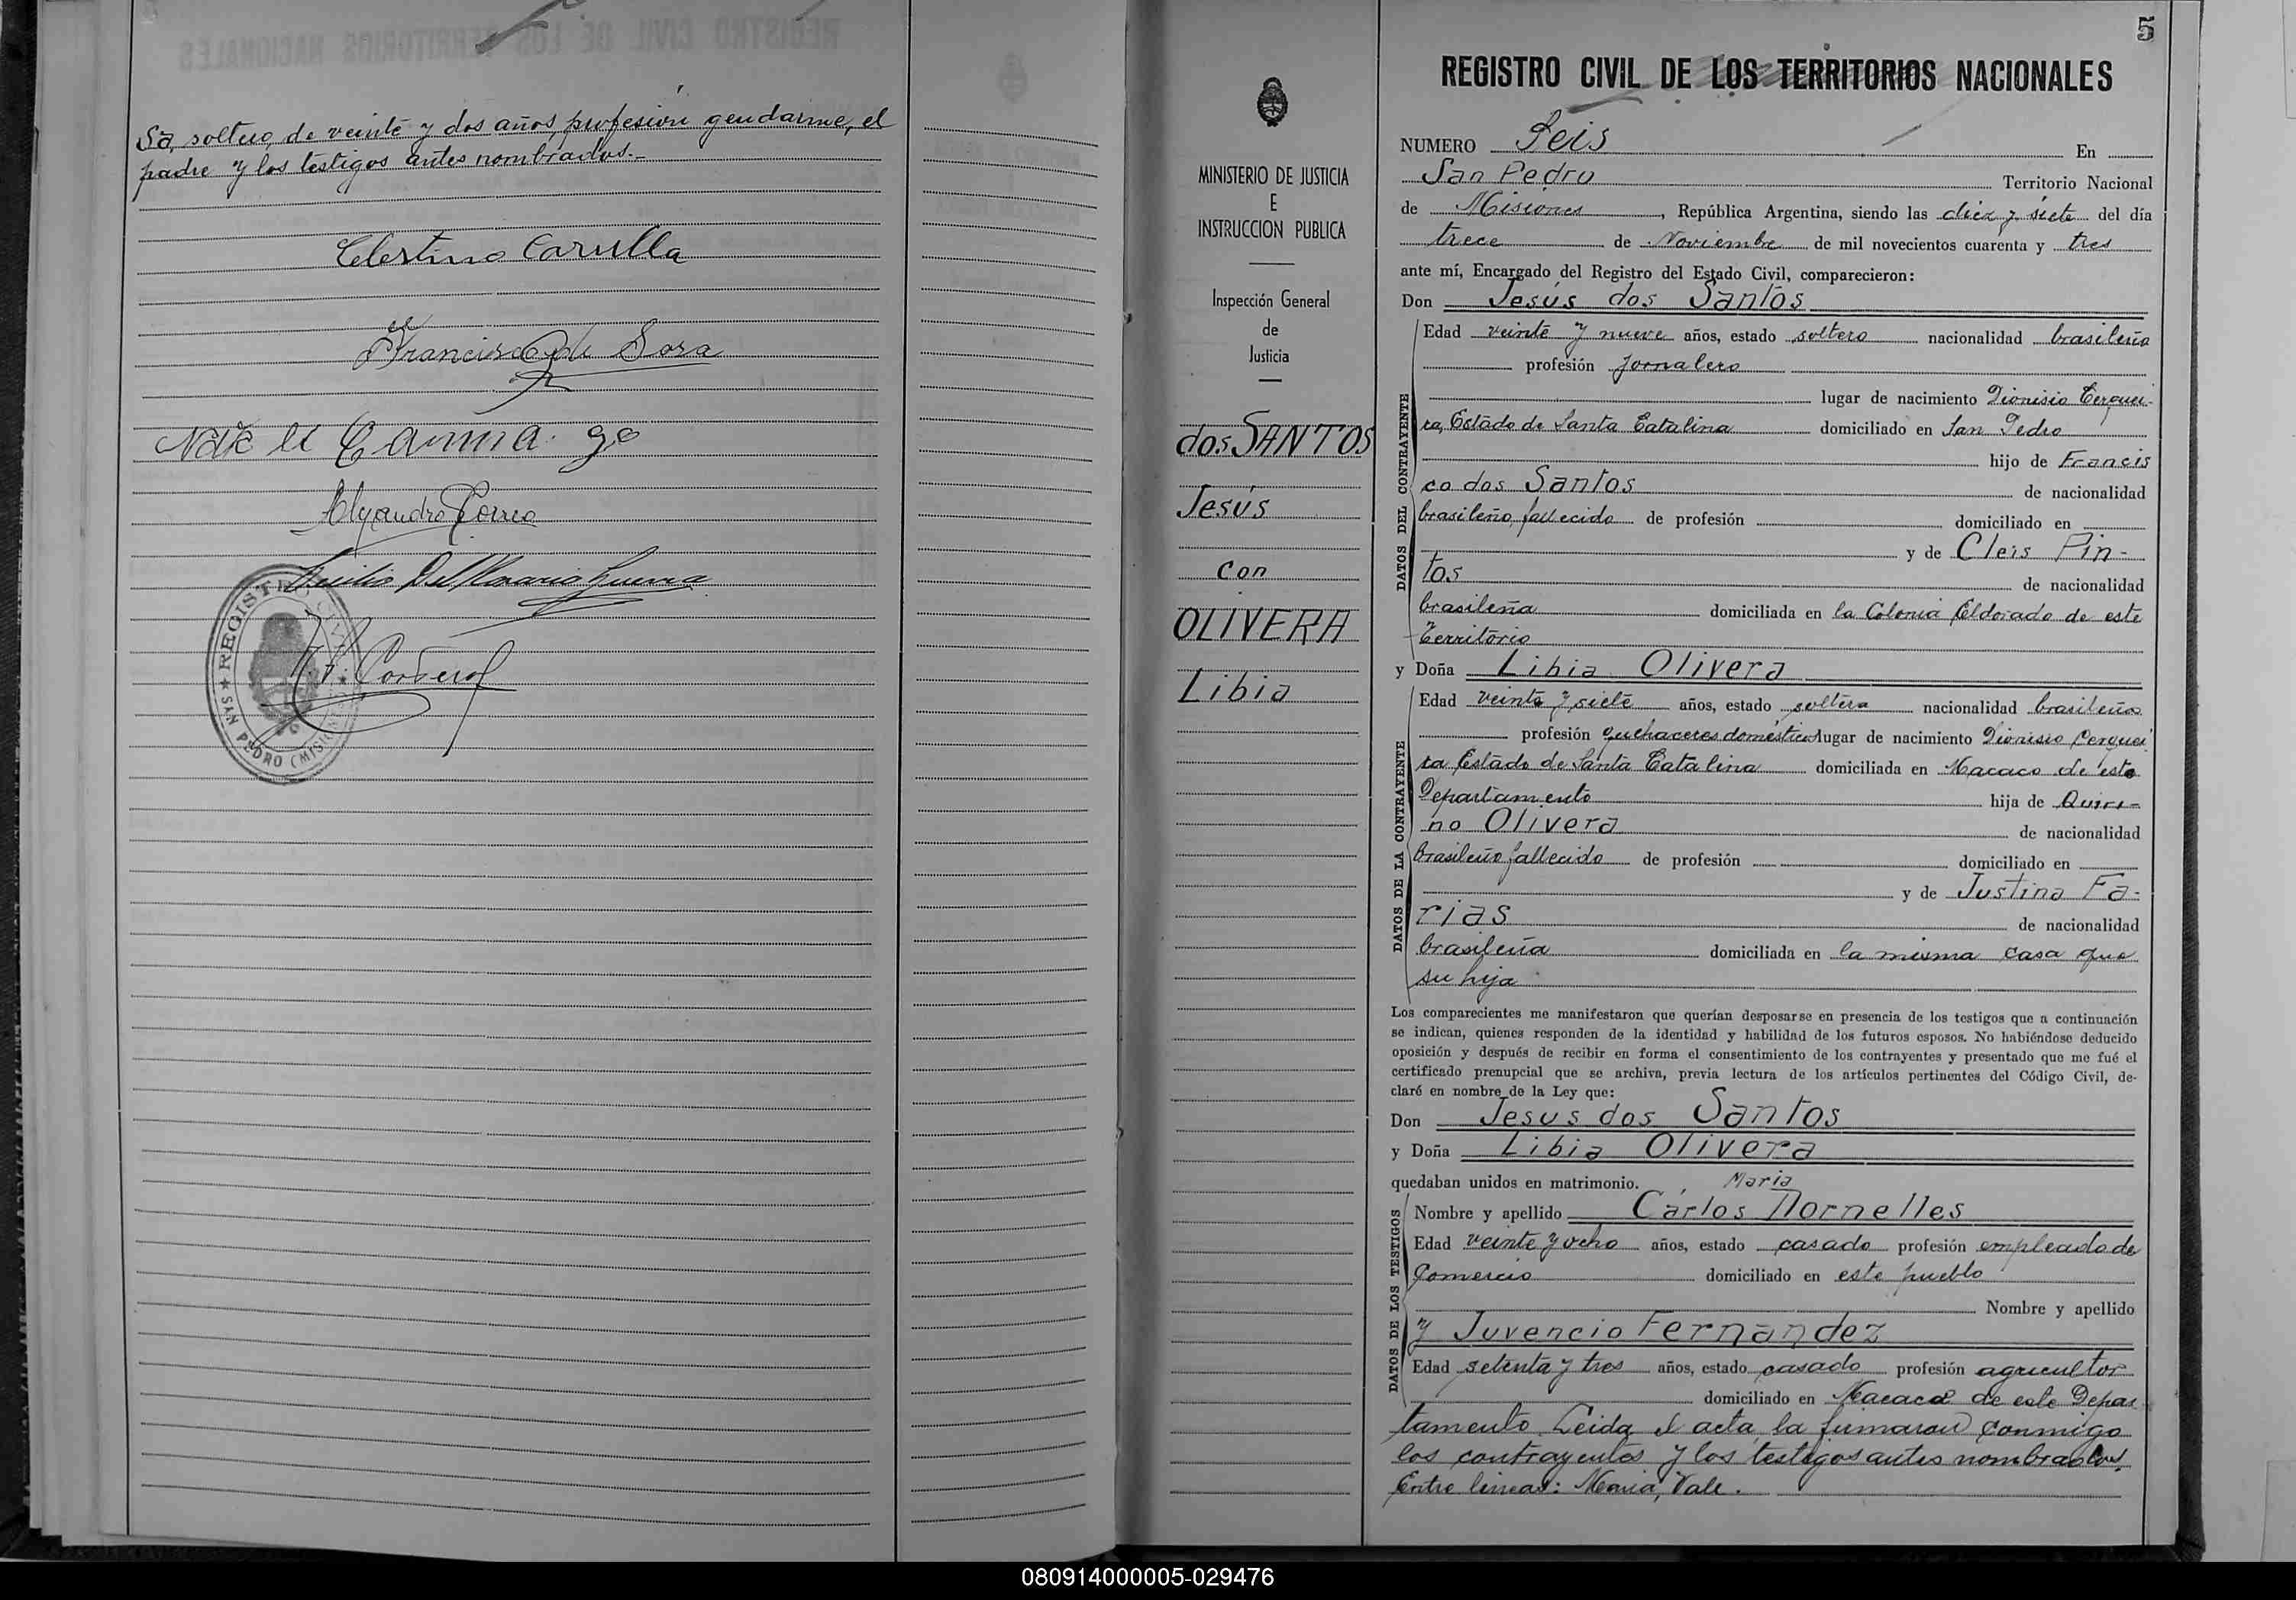 sa, soltero, de veinte y dos años, profesión gendarme, el
padre y los testigos antes nombrados.-
Celestino Carulla
Francisco de Sosa
Alejandro Correa
REGISTRO CIVIL
SAN PEDRO (MISIONES)
5
REGISTRO CIVIL DE LOS TERRITORIOS NACIONALES
MINISTERIO DE JUSTICIA
E
INSTRUCCION PUBLICA
Inspección General
de
Justicia
dos SANTOS
Jesús
con
OLIVERA
Libia
NUMERO Seis En
San Pedro Territorio Nacional
de Misiones, República Argentina, siendo las diez y siete del día
trece de Noviembre de mil novecientos cuarenta y tres
ante mí, Encargado del Registro del Estado Civil, comparecieron:
Don Jesús dos Santos
DATOS DEL CONTRAYENTE
Edad veinte y nueve años, estado soltero nacionalidad brasileña
profesión Jornalero
lugar de nacimiento Dionisio Cerquei-
ra, Estado de Santa Catalina domiciliado en San Pedro
hijo de Francis
co dos Santos de nacionalidad
brasileño, fallecido de profesión domiciliado en
y de Cleis Pin-
tos de nacionalidad
brasileña domiciliada en la Colonia Eldorado de este
Territorio
y Doña Libia Olivera
DATOS DE LA CONTRAYENTE
Edad veinte y siete años, estado soltera nacionalidad brasileña
profesión quehaceres domésticos lugar de nacimiento Dionisio Cerquei
ra Estado de Santa Catalina domiciliada en Macaco de este
Departamento hija de Quiri-
no Olivera de nacionalidad
brasileño fallecido de profesión domiciliado en
y de Justina Fa-
rias de nacionalidad
brasileña domiciliada en la misma casa que
su hija
Los comparecientes me manifestaron que querían desposarse en presencia de los testigos que a continuación
se indican, quienes responden de la identidad y habilidad de los futuros esposos. No habiéndose deducido
oposición y después de recibir en forma el consentimiento de los contrayentes y presentado que me fué el
certificado prenupcial que se archiva, previa lectura de los artículos pertinentes del Código Civil, de-
claré en nombre de la Ley que:
Don Jesus dos Santos
y Doña Libia Olivera
quedaban unidos en matrimonio. Maria
DATOS DE LOS TESTIGOS
Nombre y apellido Cárlos Dornelles
Edad veinte y ocho años, estado casado profesión empleado de
Comercio domiciliado en este pueblo
Nombre y apellido
y Juvencio Fernandez
Edad setenta y tres años, estado casado profesión agricultor
domiciliado en Macaco de este Depar
tamento. Leida el acta, la firmaron conmigo
los contrayentes y los testigos antes nombrados.
Entre lineas: Maria, Vale.
080914000005-029476